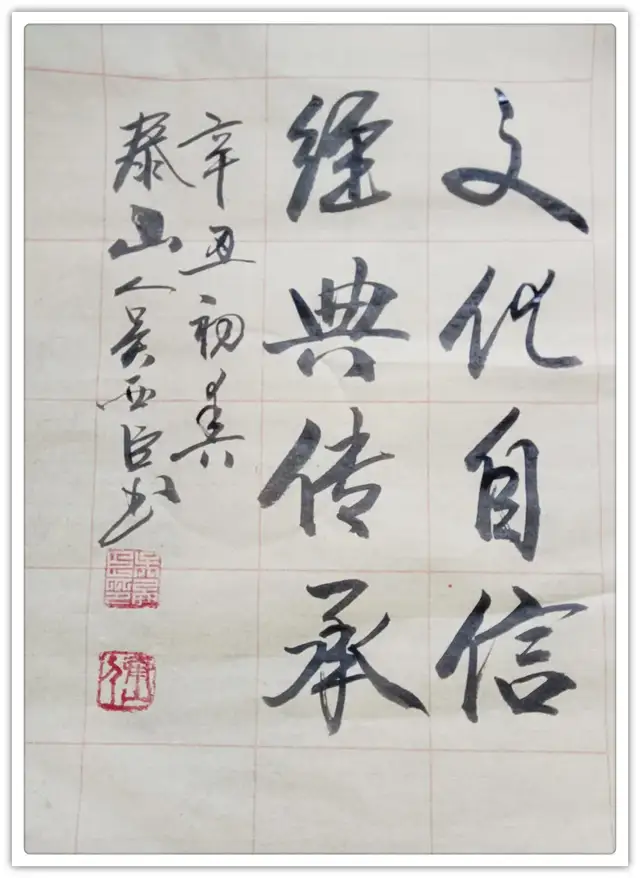 文化自信
經典传承
辛丑初
泰山人吴西臣书